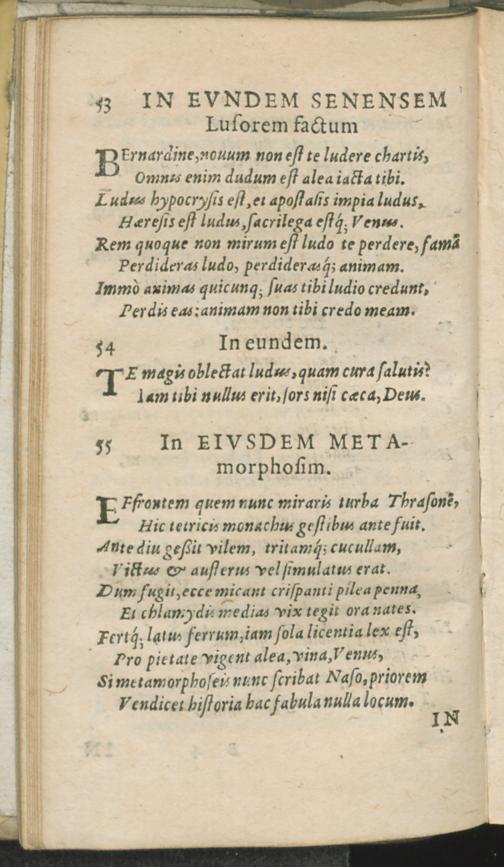 53 IN EVNDEM SENENSEM
Luſorem factum
BErnardine, nouum non eſt te ludere chartis,
Omnis enim dudum eſt alea iacta tibi.
Ludus hypocryſis eſt, et apoſtaſis impia ludus,
Hæreſis eſt ludus, ſacrilega eſtq; Venus.
Rem quoque non mirum eſt ludo te perdere, famā
Perdideras ludo, perdiderasq; animam.
Immò animas quicunq; ſuas tibi ludio credunt,
Perdis eas: animam non tibi credo meam.
54 In eundem.
TE magis oblectat ludus, quam cura ſalutis?
Iam tibi nullus erit, ſors niſi cæca, Deus.
55 In EIVSDEM META-
morphoſim.
EFfrontem quem nunc miraris turba Thraſonē,
Hic tetricis monachus geſtibus ante fuit.
Ante diu geßit vilem, tritamq́; cucullam,
Victus & auſterus vel ſimulatus erat.
Dum fugit, ecce micant criſpanti pilea penna,
Et chlamydis medias vix tegit ora nates.
Fertq́; latus ferrum, iam ſola licentia lex eſt,
Pro pietate vigent alea, vina, Venus,
Si metamorphoſeis nunc ſcribat Naſo, priorem
Vendicet hiſtoria hac fabula nulla locum.
IN